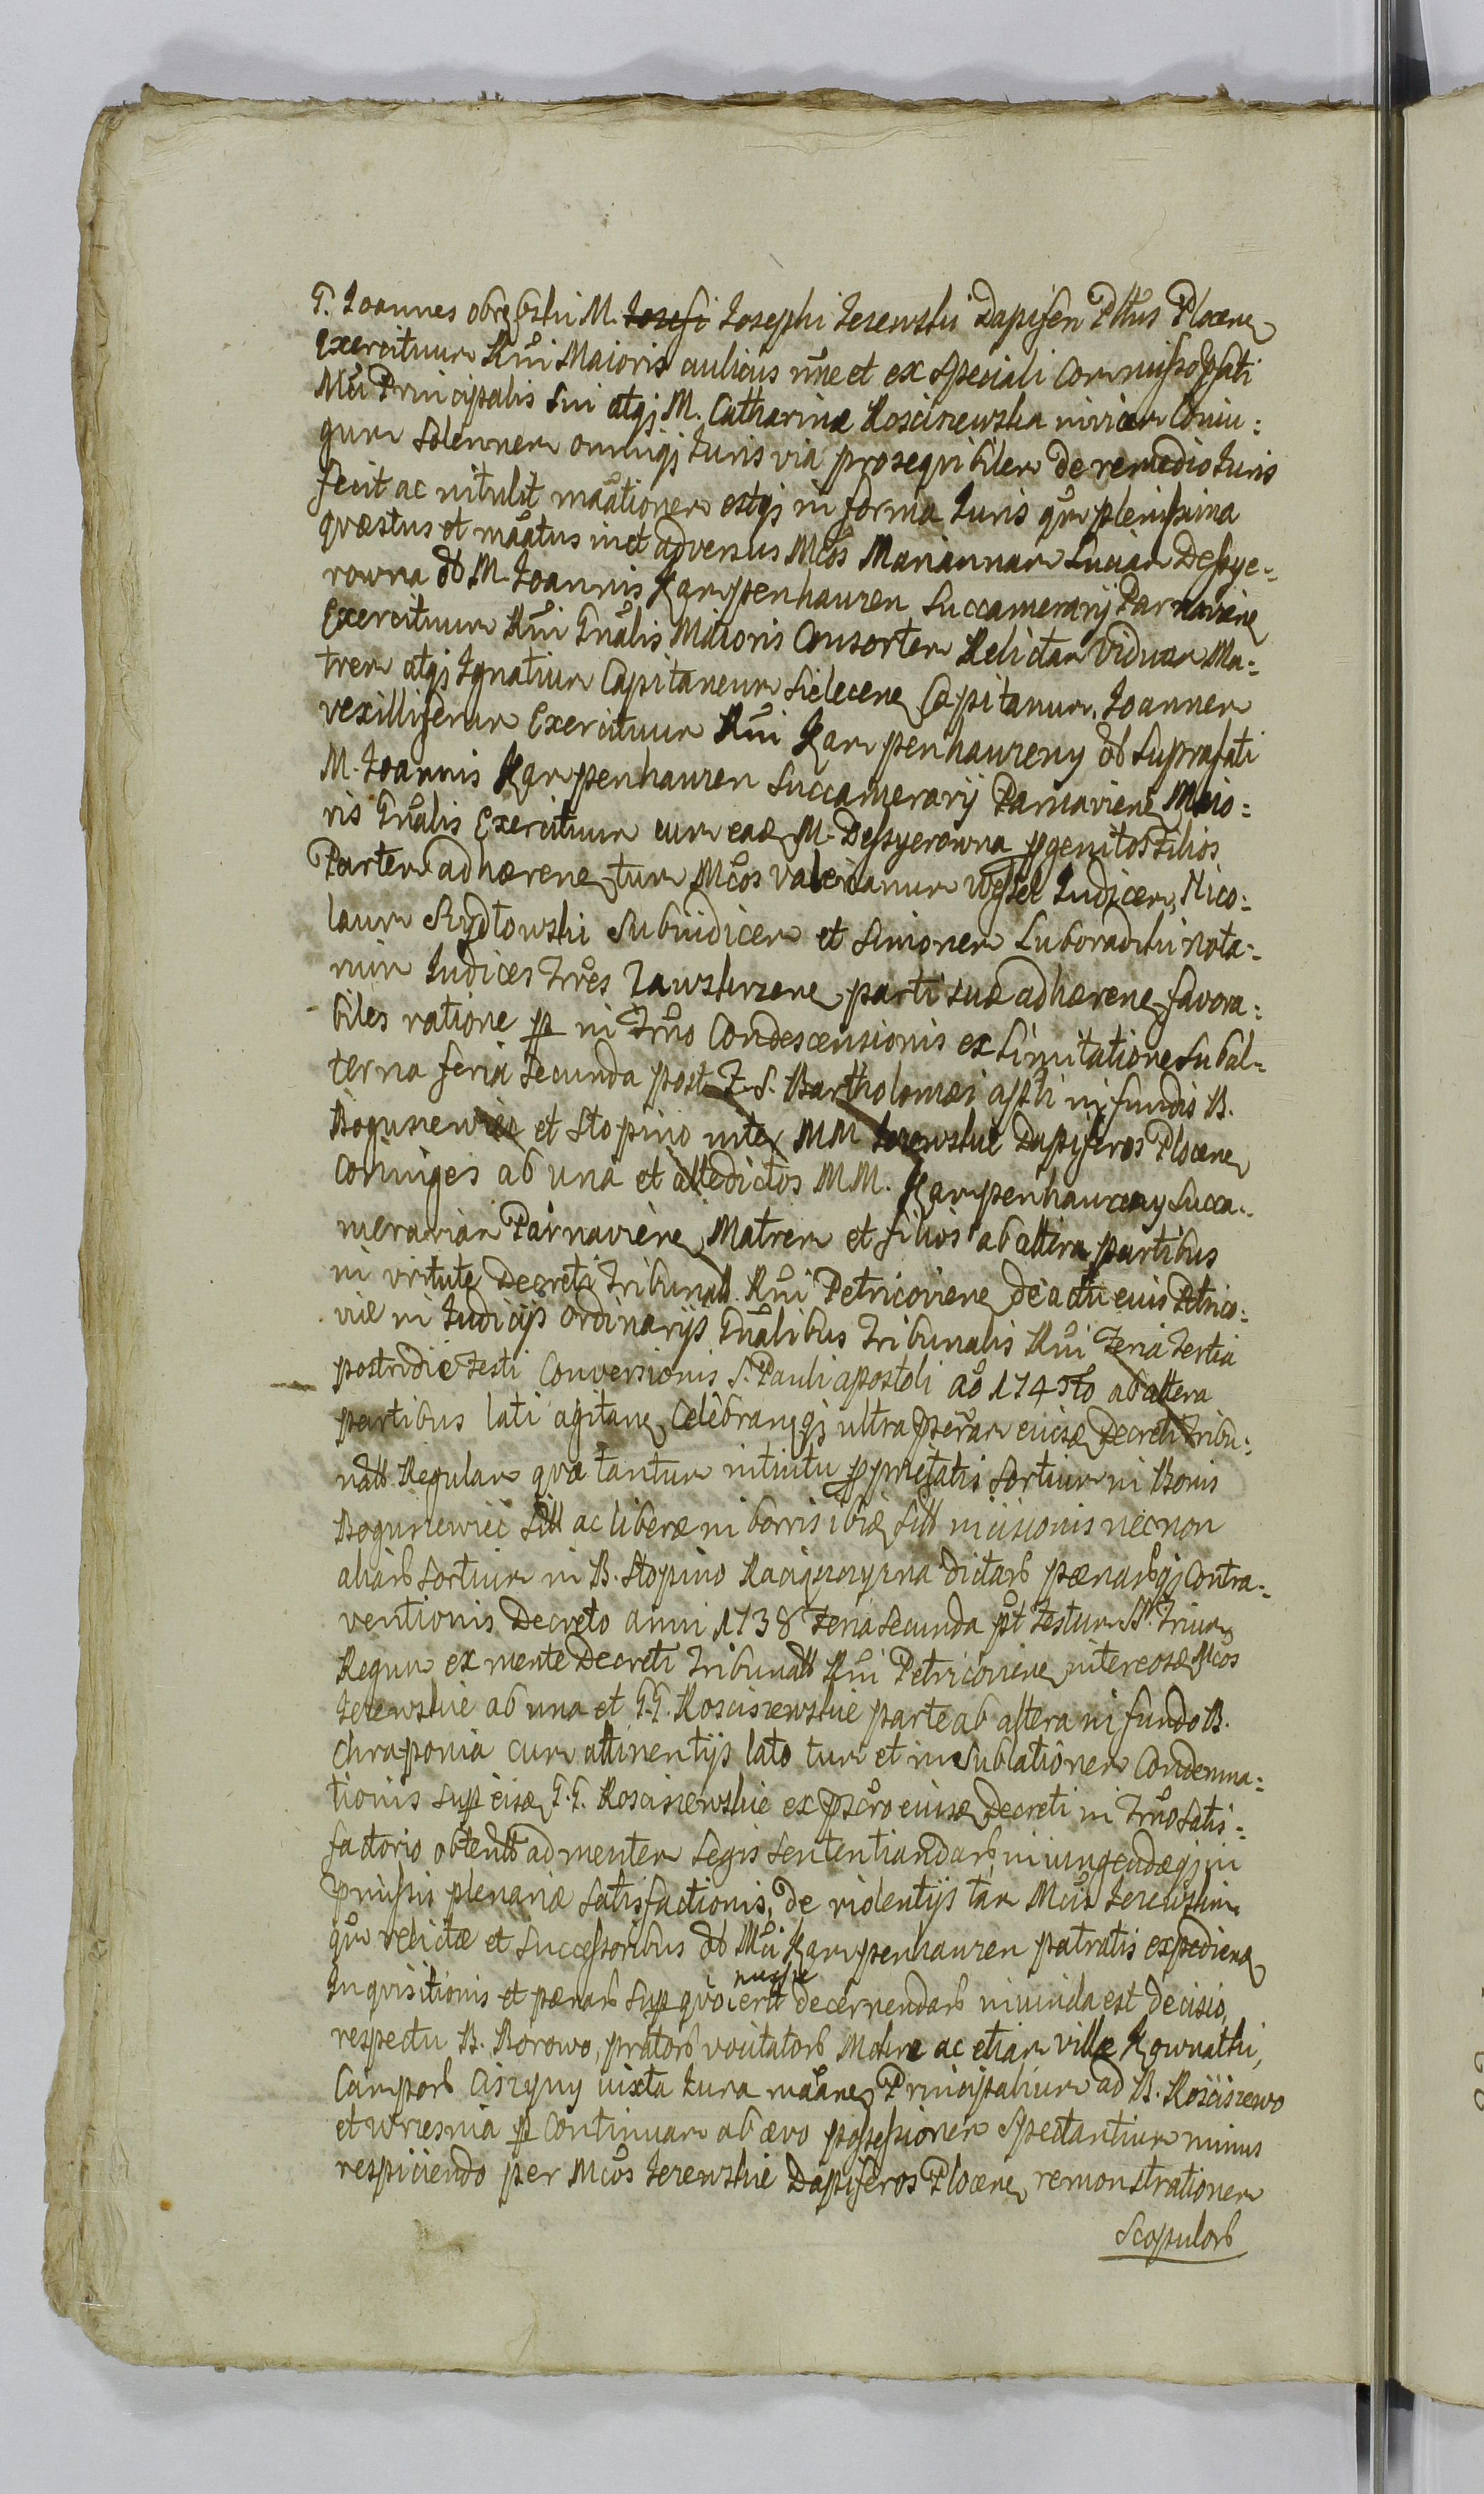 G. Joannes obrębski M. Josefi Josephi Jezewski Dapiferi Pttus Plocen
Exercituum Rñi Maioris aulicus nne et ex speciali Commisso pfati
Mci Principalis sui atqȝ M. Catharinæ Kosciszewska invicem Coniu:
gum Solennem omniqȝ Juris via prosequibilem de remedio Juris
fecit ac intulit mãationem estqȝ in forma Juris qm plenissima
quæstus et mãatus inct adversus Mcos Mariannam Luciam Dessye:
rowna ob M. Joannis Karpenhauzen Succamerarij Parnavien
Exercituum Rñi Gñalis Maioris Consortem Relictam Viduam Ma:
trem atqȝ Ignatium Capitaneum Sielecen Capitanum, Joannem
vexilliferum Exercituum Rñi Karpenhaureny ob suprafati
M. Joannis Karpenhauzen Succamerarij Parnavien Maio:
ris Gñalis Exercituum cum ead M. Dessyerowna pgenitos Filios
Partem adhæren, tum Mcos Valerianum Wessel Judicem, Nico:
laum Rydtowski Subiudicem et Simonem Luboradzki nota:
rium Judices Trres Zawskrzen parti suæ adhæren favora:
biles ratione p in Trno Condescensionis ex Limitatione subal:
terna feria secunda post F. S. Bartholomæi apli in fundis B.
Bogusewiec et Stopino inter MM Jezewskie Dapiferos Plocen
Coniuges ab una et attedictos MM. Karpenhaureny Succa:
merariam Parnavien Matrem et filios ab altera partibus
in virtute Decreti Tribunall. Rñi Petricovien de actu eius Petrico:
viæ in Judicijs ordinarijs Gñalibus Tribunalis Rñi Feria Tertia
postridie Festi Conversionis S. Pauli apostoli aõ 1745to ab altera
partibus lati agitan, Celebranqȝ ultra pscrãm eiusd Decreti Tribu:
nall Regulam quæ tantum intuitu pprietatis Sortium in Bonis
Bogunewiec Sitt ac liberæ in borris ibid Sitt incisionis necnon
aliarb Sortium in B. Stopino Raciqzczyzna dictarb pænarbqȝ Contra:
ventionis Decreto anni 1738 Feria secunda pt Festum SS. Trium
Regum ex mente Decreti Tribunall Rñi Petricovien inter eosd Mcos
Jezewskie ab una et G.G. Kosciszewskie parte ab altera in fundo B.
Chraponia cum attinentijs lato tum et in Sublationem Condemna:
tionis sup eisd G.G. Kosciszewskie ex pscro eiusd Decreti in Trno Satis:
factorio obtentt ad mentem Legis Sententiandarb, iniungendæqȝ in
pmissis plenariæ satisfactionis, de violentijs tam Mcis Jezewskim
qm relictæ et Successoribus ob Mci Karpenhauzen patratis expedien
Inquisitionis et pænarb sup quo ierit nuspie decernendarb iniunda est decisio,
respectu B. Borowo, pratorb vocitatorb Mokre ac etiam villæ Kownatki,
Camporb Ciszyny iuxta Jura mãan Principalium ad B. Kosciszewo
et wrzesnia p Continuam ab ævo possessionem Spectantium minus
respiciendo per Mcos Jezewskie Dapiferos Plocen remonstrationem
Scopulorb